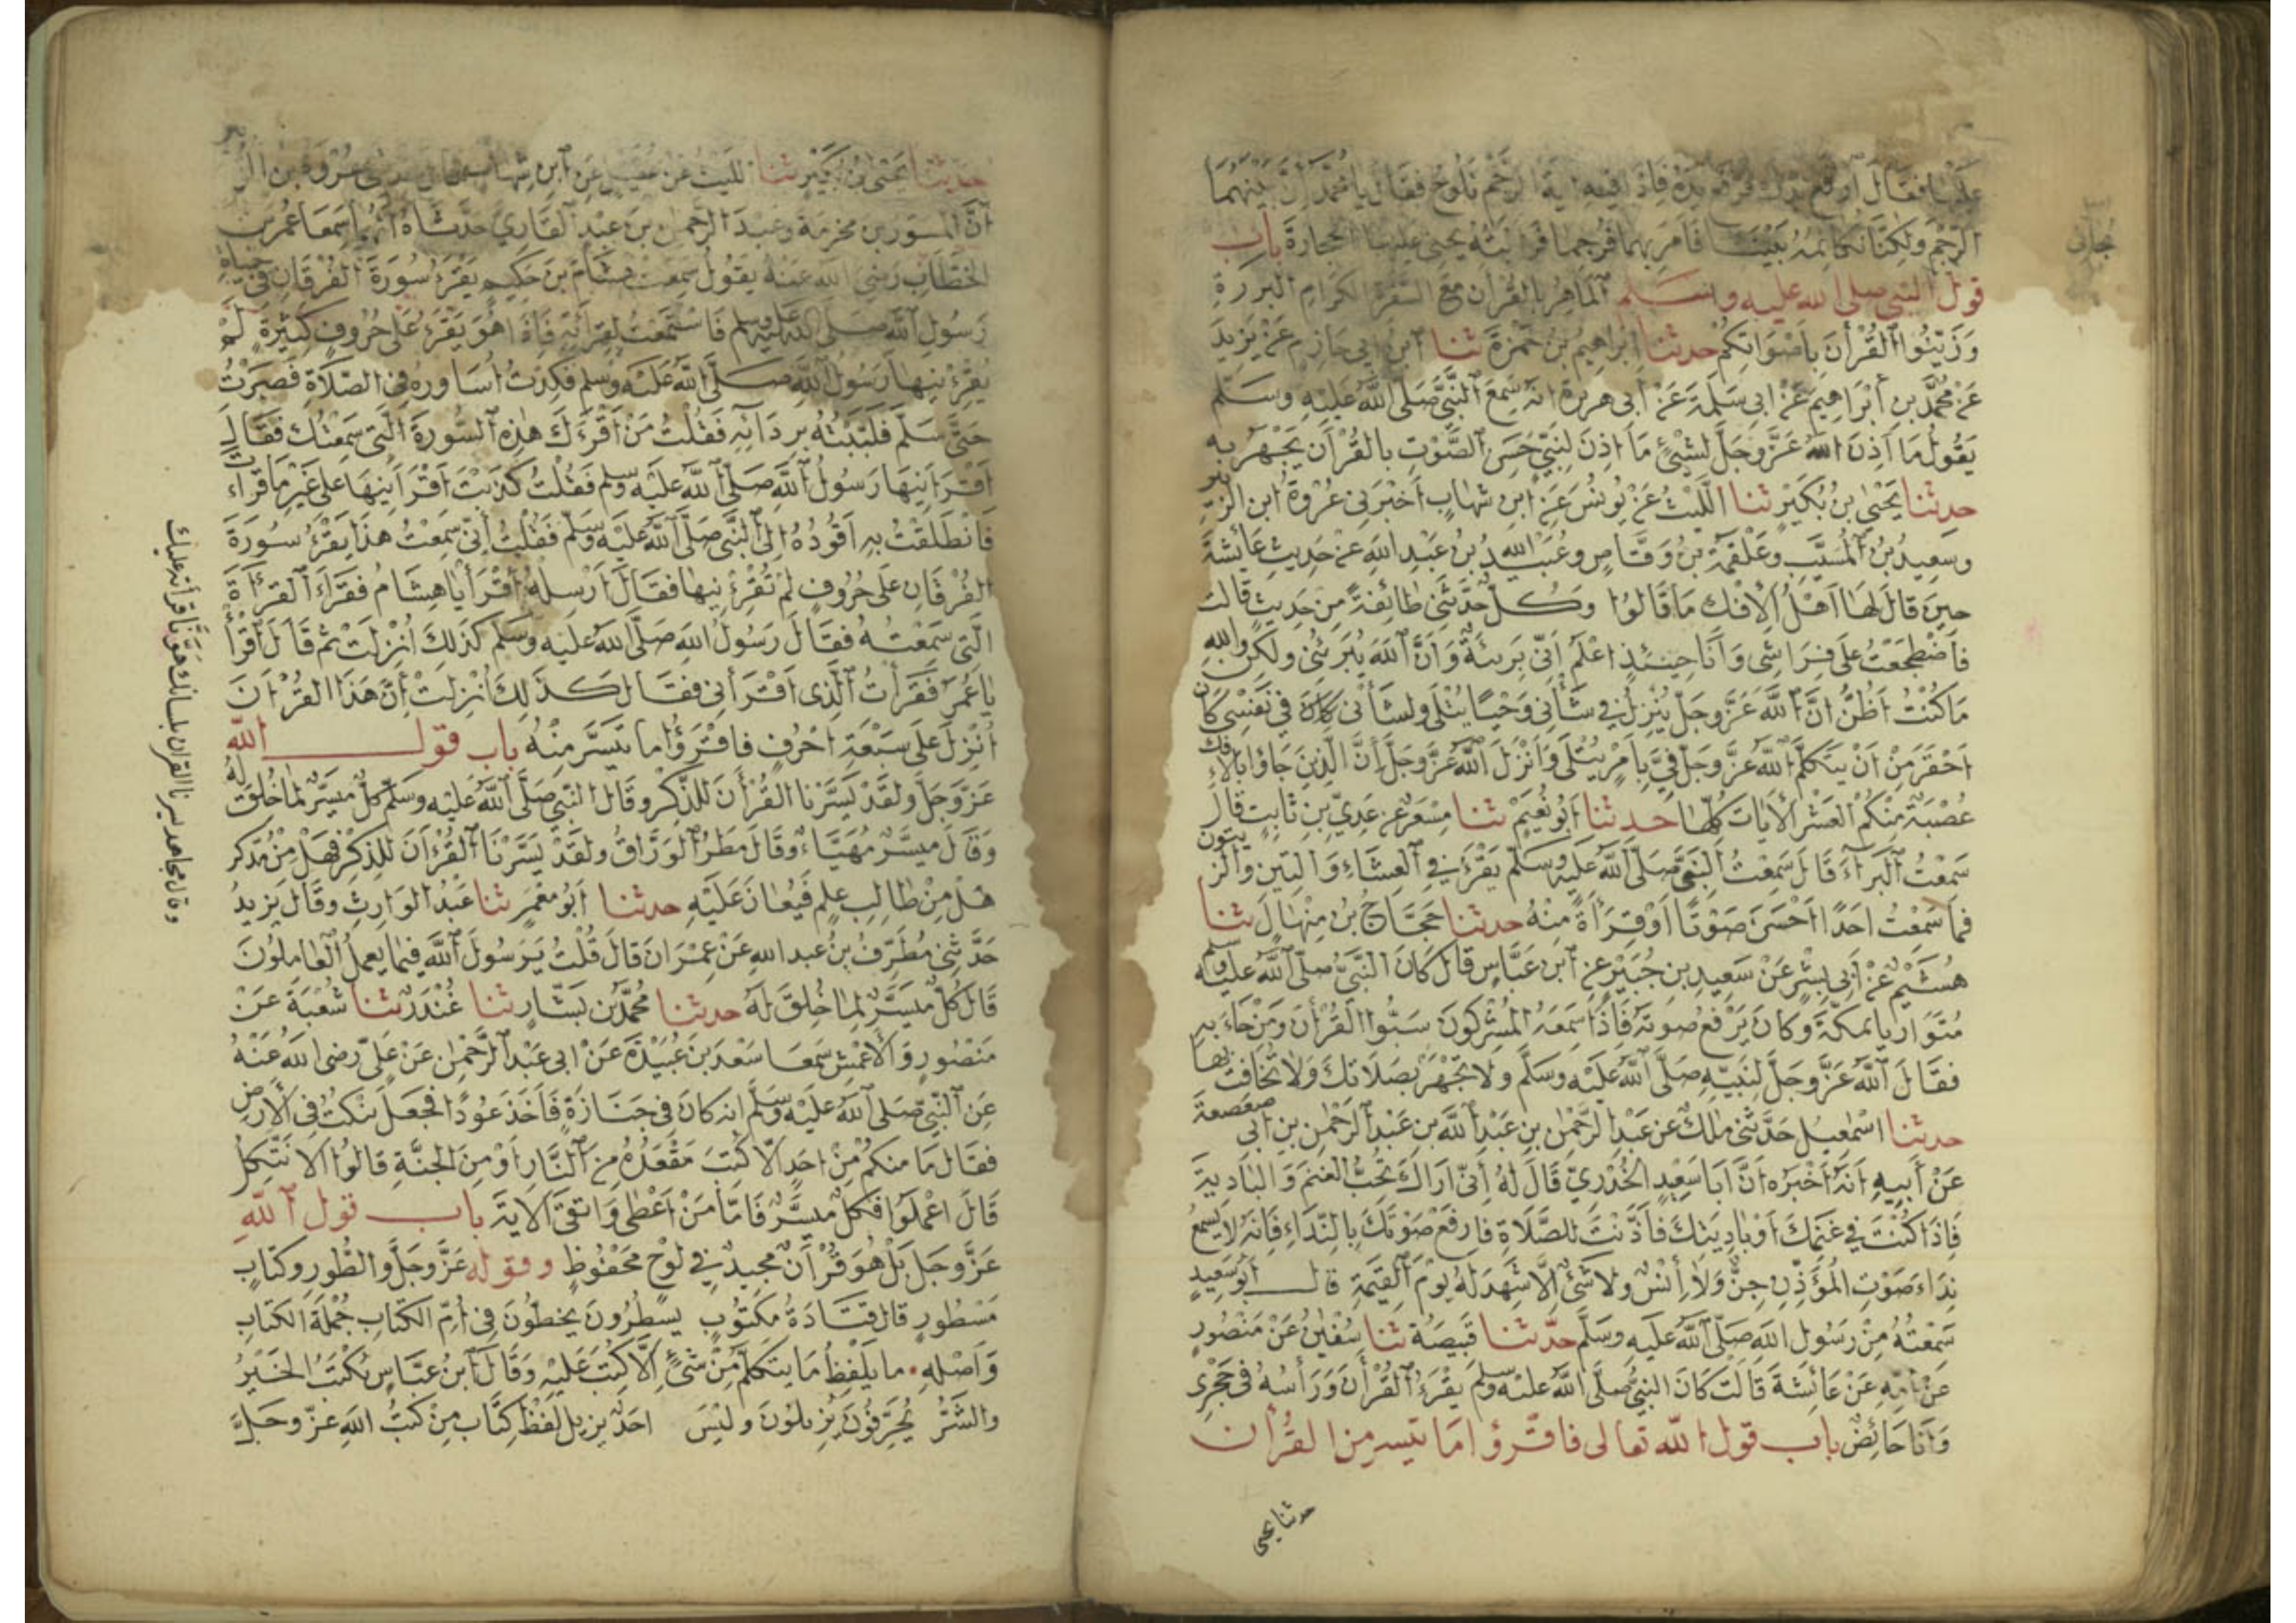 عليها فقال ارفع يدك فرفع يده فاذا فيه اية الرجم تلوح فقال يا محمد ان بينهما
الرجم ولكنا نكاتمه بيننا فامر بهما فرجما فرايته يحنى عليها الحجارة باب
قول النبي صلى الله عليه وسلم الماهر بالقرآن مع السفرة الكرام البررة
وزينوا القرآن باصواتكم حدثنا ابراهيم بن حمزة ثنا ابن ابي حازم عن يزيد
عن محمد بن ابراهيم عن ابى سلمة عن أبى هريرة انه سمع النبي صلى الله عليه وسلم
يقول ما اذن الله عز وجل لشىء ما اذن لنبي حسن الصوت بالقرآن يجهر به
حدثنا يحيى بن بكير ثنا الليث عن يونس عن ابن شهاب اخبرنى عروة ابن الزبير
وسعيد بن المسيب وعلقمة بن وقاص وعبيد الله بن عبد الله عن حديث عائشة
حين قال لها اهل الافك ما قالوا وكل حدثني طائفة من حديث قالت
فاضطجعت على فراشى وأنا حينئذ اعلم انى بريئة وان الله يبرئنى ولكن والله
ما كنت اظن ان الله عز وجل ينزل في شأنى وحيا يتلى ولشأنى كان في نفسى كان
احقر من ان يتكلم الله عز وجل في بامر يتلى وانزل الله عز وجل ان الذين جاؤا بالافك
عصبة منكم العشر الايات كلها حدثنا ابو نعيم ثنا مسعر عن عدي بن ثابت قال
سمعت البراء قال سمعت النبي صلى الله عليه وسلم يقرأ في العشاء والتين والزيتون
فما سمعت احدا احسن صوتا او قرأة منه حدثنا حجاج بن منهال ثنا
هشيم عن أبى بشر عن سعيد بن جبير عن ابن عباس قال كان النبي صلى الله عليه وسلم
متواريا بمكة وكان يرفع صوته فاذا سمعه المشركون سبوا القرأن ومن جاء به
فقال الله عز وجل لنبيه صلى الله عليه وسلم ولا تجهر بصلاتك ولا تخافت بها
حدثنا اسمعيل حدثنى مالك عن عبد الرحمن بن عبد الله بن عبد الرحمن بن ابى صعصعة
عن أبيه انه اخبره ان ابا سعيد الخدري قال له انى اراك تحب الغنم والبادية
فاذا كنت في غنمك او باديتك فأذنت للصلاة فارفع صوتك بالنداء فانه لا يسمع
نداء صوت المؤذن جن ولا أنس ولا شئ الا شهد له يوم القيمة قال ابو سعيد
سمعته من رسول الله صلى الله عليه وسلم حدثنا قبيصة ثنا سفين عن منصور
عن امه عن عائشة قالت كان النبي صلى الله عليه وسلم يقرء القرأن ورأسه فى حجرى
وأنا حائض باب قول الله تعالى فاقرؤا ما تيسر من القرأن
حدثنا يحيى
حدثنا يحيى بن بكير ثنا الليث عن عقيل عن ابن شهاب حدثنى عروة بن الزبير
ان المسور بن مخرمة وعبد الرحمن بن عبد القاري حدثاه انهما سمعا عمر بن
الخطاب رضي الله عنه يقول سمعت هشام بن حكيم يقرء سورة الفرقان في حياة
رسول الله صلى الله عليه وسلم فاستمعت لقرأته فاذا هو يقرء على حروف كثيرة لم
يقرئنيها رسول الله صلى الله عليه وسلم فكدت اساوره فى الصلاة فصبرت
حتى سلم فلببته بردائه فقلت من اقرءك هذه السورة التى سمعتك فقال
اقرأنيها رسول الله صلى الله عليه وسلم فقلت كذبت اقرأنيها على غير ما قرأت
فانطلقت به اقوده الى النبي صلى الله عليه وسلم فقلت انى سمعت هذا يقرء سورة
الفرقان على حروف لم تقرئنيها فقال ارسله اقرأ يا هشام فقرأ القرأة
التى سمعته فقال رسول الله صلى الله عليه وسلم كذلك انزلت ثم قال اقرأ
يا عمر فقرأت الذى اقرأنى فقال كذلك انزلت أن هذا القرأن
انزل على سبعة احرف فاقرؤا ما تيسر منه باب قول الله
عز وجل ولقد يسرنا القرأن للذكر وقال النبي صلى الله عليه وسلم كل ميسر لما خلق له
وقال ميسر مهياء وقال مطر الوراق ولقد يسرنا القرأن للذكر فهل من مدكر
هل من طالب علم فيعان عليه حدثنا ابو معمر ثنا عبد الوارث وقال يزيد
حدثنى مطرف بن عبد الله عن عمران قال قلت يرسول الله فيما يعمل العاملون
قال كل ميسر لما خلق له حدثنا محمد بن بشار ثنا غندر ثنا شعبة عن
منصور والاعمش سمعا سعد بن عبيدة عن ابى عبد الرحمن عن على رضى الله عنه
عن النبي صلى الله عليه وسلم انه كان في جنازة فاخذ عودا فجعل ينكت فى الارض
فقال ما منكم من احد الا كتب مقعده من النار او من الجنة قالوا الا نتكل
قال اعملوا فكل ميسر فاما من اعطى واتقى الاية باب قول الله
عز وجل بل هو قرأن مجيد في لوح محفوظ وقوله عز وجل والطور وكتاب
مسطور قال قتادة مكتوب يسطرون يخطون فى ام الكتاب جملة الكتاب
واصله ما يلفظ ما يتكلم من شئ الا كتب عليه وقال ابن عباس يكتب الخير
والشر يحرفون يزيلون وليس احد يزيل لفظ كتاب من كتب الله عز وجل
وقال مجاهد يسرنا القران بلسانك هونا قرأته عليك